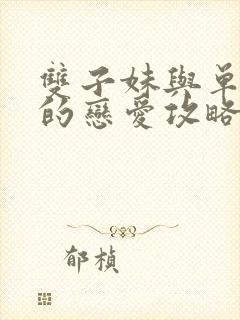 雙子妹與單
的戀愛攻略
郁楨